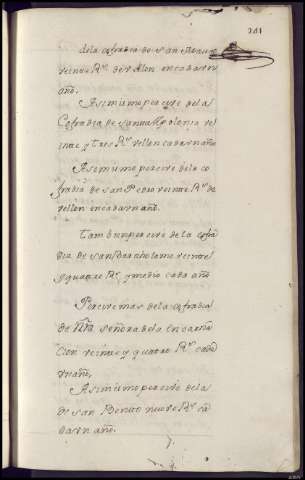 241
dela cofradia de san
veinte Rs de vellon encadaun
año.
Asimismo percive dela
Cofradia de Santa Apolonia ve
inte y tres Rs vellon cadaun año
Asimismo percive dela co
fradia de san Pedro veinte Rs de
vellon encadaun año.
Tambien percive de la cofra
dia de san Bartholome veinte
y quatro Rs y medio cada año
Percive mas de la cofradia
de Nra Señora dela Encarna
cion veinte y quatro Rs cada
un año,
Asimismo percive dela
de san Benito nueve Rs ca
daun año.